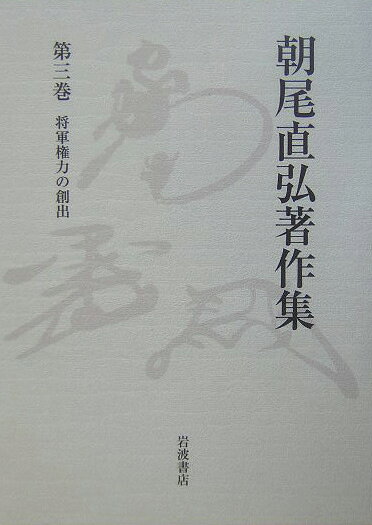 朝尾直弘著作集
第三巻 将軍権力の創出
岩波書店